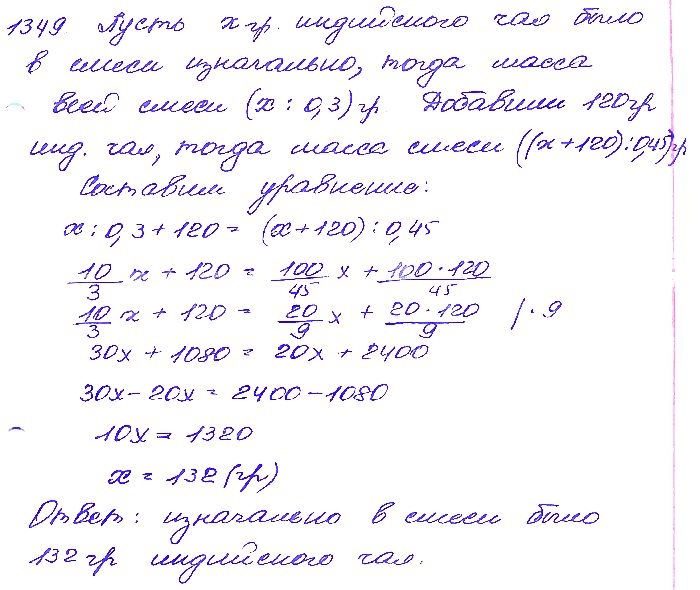 1349 Пусть x гр. индийского чая было
в смеси изначально, тогда масса
всей смеси (x : 0,3) гр Добавили 120гр
инд. чая, тогда масса смеси ((x+120):0,45)гр
Составим уравнение:
x : 0,3 + 120 = (x+120) : 0,45
10/3 x + 120 = 100/45 x + 100·120/45
10/3 x + 120 = 20/9 x + 20·120/9 / · 9
30x + 1080 = 20x + 2400
30x - 20x = 2400 - 1080
10x = 1320
x = 132 (гр)
Ответ: изначально в смеси было
132 гр индийского чая.